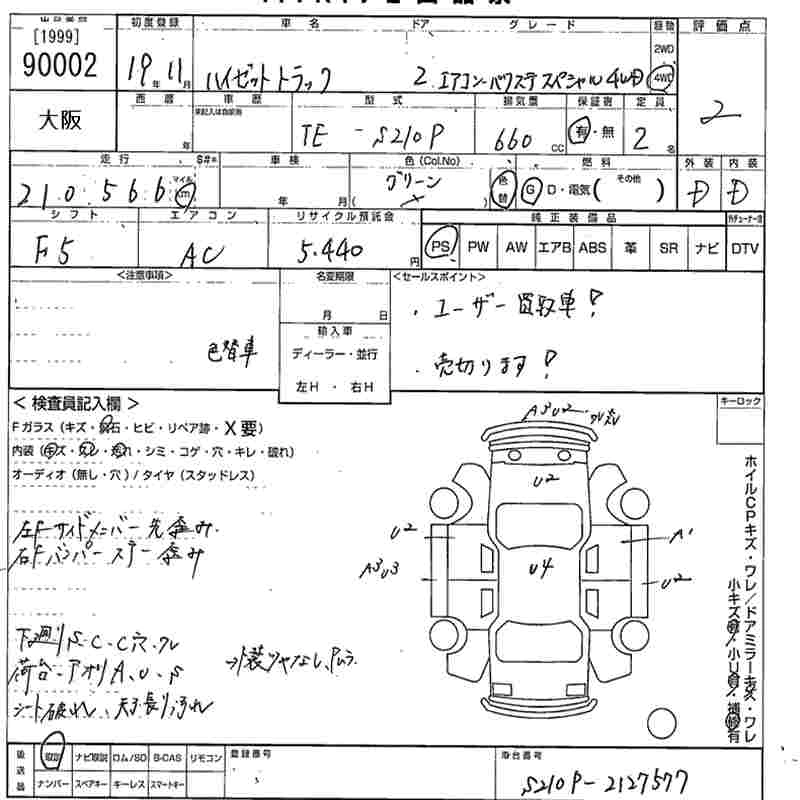 [1999] 初度登録 車名 ドア グレード 駆替 評価点
90002 19年 11月 ハイゼットトラック 2 エアコン・パワステ スペシャル 4WD 2WD 4WD 2
大阪 西暦 年 車歴 未記入は自家用 型式 TE - S210P 排気量 660 cc 保証書 有・無 定員 2名
走行 S#* 車検 色(Col.No) 燃料 外装 内装
210,566 マイル km 年 月 グリーン ( ) 色替 G D・電気( その他 ) D D
シフト エアコン リサイクル預託金 純正装備品
F5 AC 5,440円 PS PW AW エアB ABS 革 SR ナビ DTV
<注意事項> 名変期限 <セールスポイント>
月 日 ・ユーザー買取車!
輸入車
色替車 ディーラー・並行 ・売切ります!
左H ・ 右H
< 検査員記入欄 > キーロック
Fガラス(キズ・飛石・ヒビ・リペア跡・X要)
内装(キズ・スレ・汚れ・シミ・コゲ・穴・キレ・破れ)
オーディオ(無し・穴)/タイヤ(スタッドレス)
A3U2
U2
左Fサイドメンバー先歪み
右Fバンパーステー歪み
U2 A1
A3U3 U4 U2
下廻りS・C・C穴・ワレ
荷台・アオリA、U、S →外装ツヤなし、Pムラ
シート破れ、天張り汚れ
ホイルCPキズ・ワレ/ドアミラーキズ・ワレ
小キズ有/小U有/補修有
後送品 取説 ナビ取説 ロム/SD B-CAS リモコン 登録番号 車台番号
ナンバー スペアキー キーレス スマートキー S210P-2127577